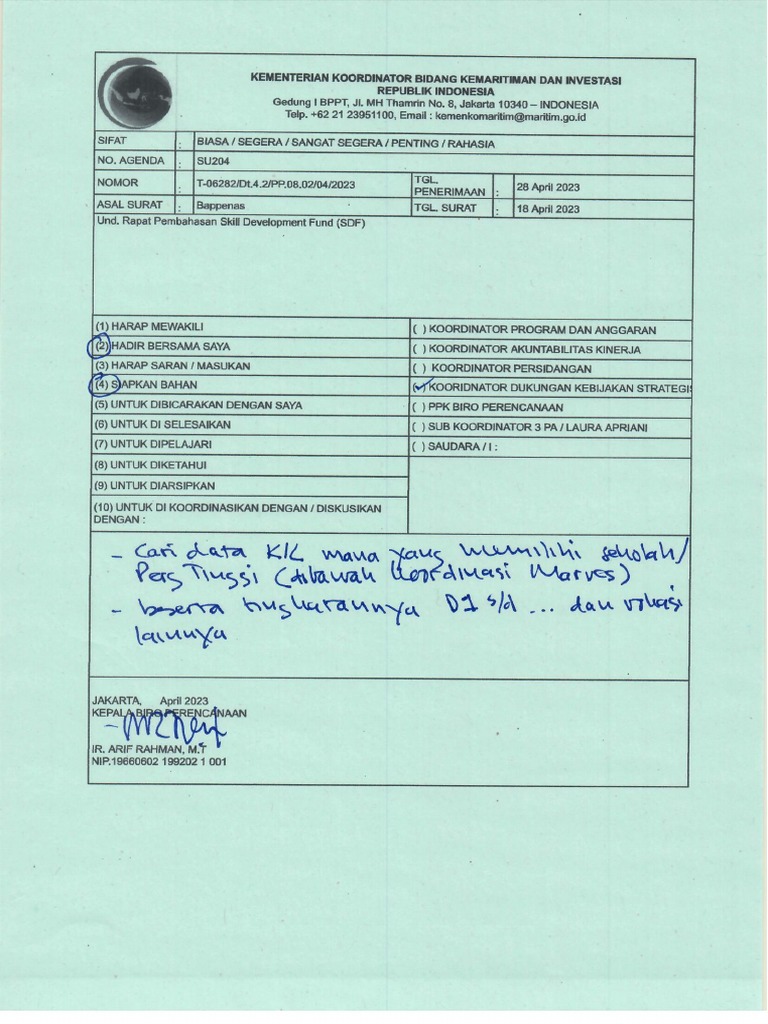 KEMENTERIAN KOORDINATOR BIDANG KEMARITIMAN DAN INVESTASI
REPUBLIK INDONESIA
Gedung I BPPT, Jl. MH Thamrin No. 8, Jakarta 10340 – INDONESIA
Telp. +62 21 23951100, Email : kemenkomaritim@maritim.go.id
SIFAT : BIASA / SEGERA / SANGAT SEGERA / PENTING / RAHASIA
NO. AGENDA : SU204
NOMOR : T-06282/Dt.4.2/PP.08.02/04/2023 TGL. PENERIMAAN : 28 April 2023
ASAL SURAT : Bappenas TGL. SURAT : 18 April 2023
Und. Rapat Pembahasan Skill Development Fund (SDF)
(1) HARAP MEWAKILI
(2) HADIR BERSAMA SAYA
(3) HARAP SARAN / MASUKAN
(4) SIAPKAN BAHAN
(5) UNTUK DIBICARAKAN DENGAN SAYA
(6) UNTUK DI SELESAIKAN
(7) UNTUK DIPELAJARI
(8) UNTUK DIKETAHUI
(9) UNTUK DIARSIPKAN
(10) UNTUK DI KOORDINASIKAN DENGAN / DISKUSIKAN
DENGAN :
( ) KOORDINATOR PROGRAM DAN ANGGARAN
( ) KOORDINATOR AKUNTABILITAS KINERJA
( ) KOORDINATOR PERSIDANGAN
(✓) KOORIDNATOR DUKUNGAN KEBIJAKAN STRATEGIS
( ) PPK BIRO PERENCANAAN
( ) SUB KOORDINATOR 3 PA / LAURA APRIANI
( ) SAUDARA / I :
- Cari data K/L mana yang memiliki sekolah/
Perg Tinggi (dibawah koordinasi Marves)
- beserta tingkatannya D1 s/d ... dan vokasi
lainnya
JAKARTA, April 2023
KEPALA BIRO PERENCANAAN
IR. ARIF RAHMAN, M.T
NIP.19660602 199202 1 001